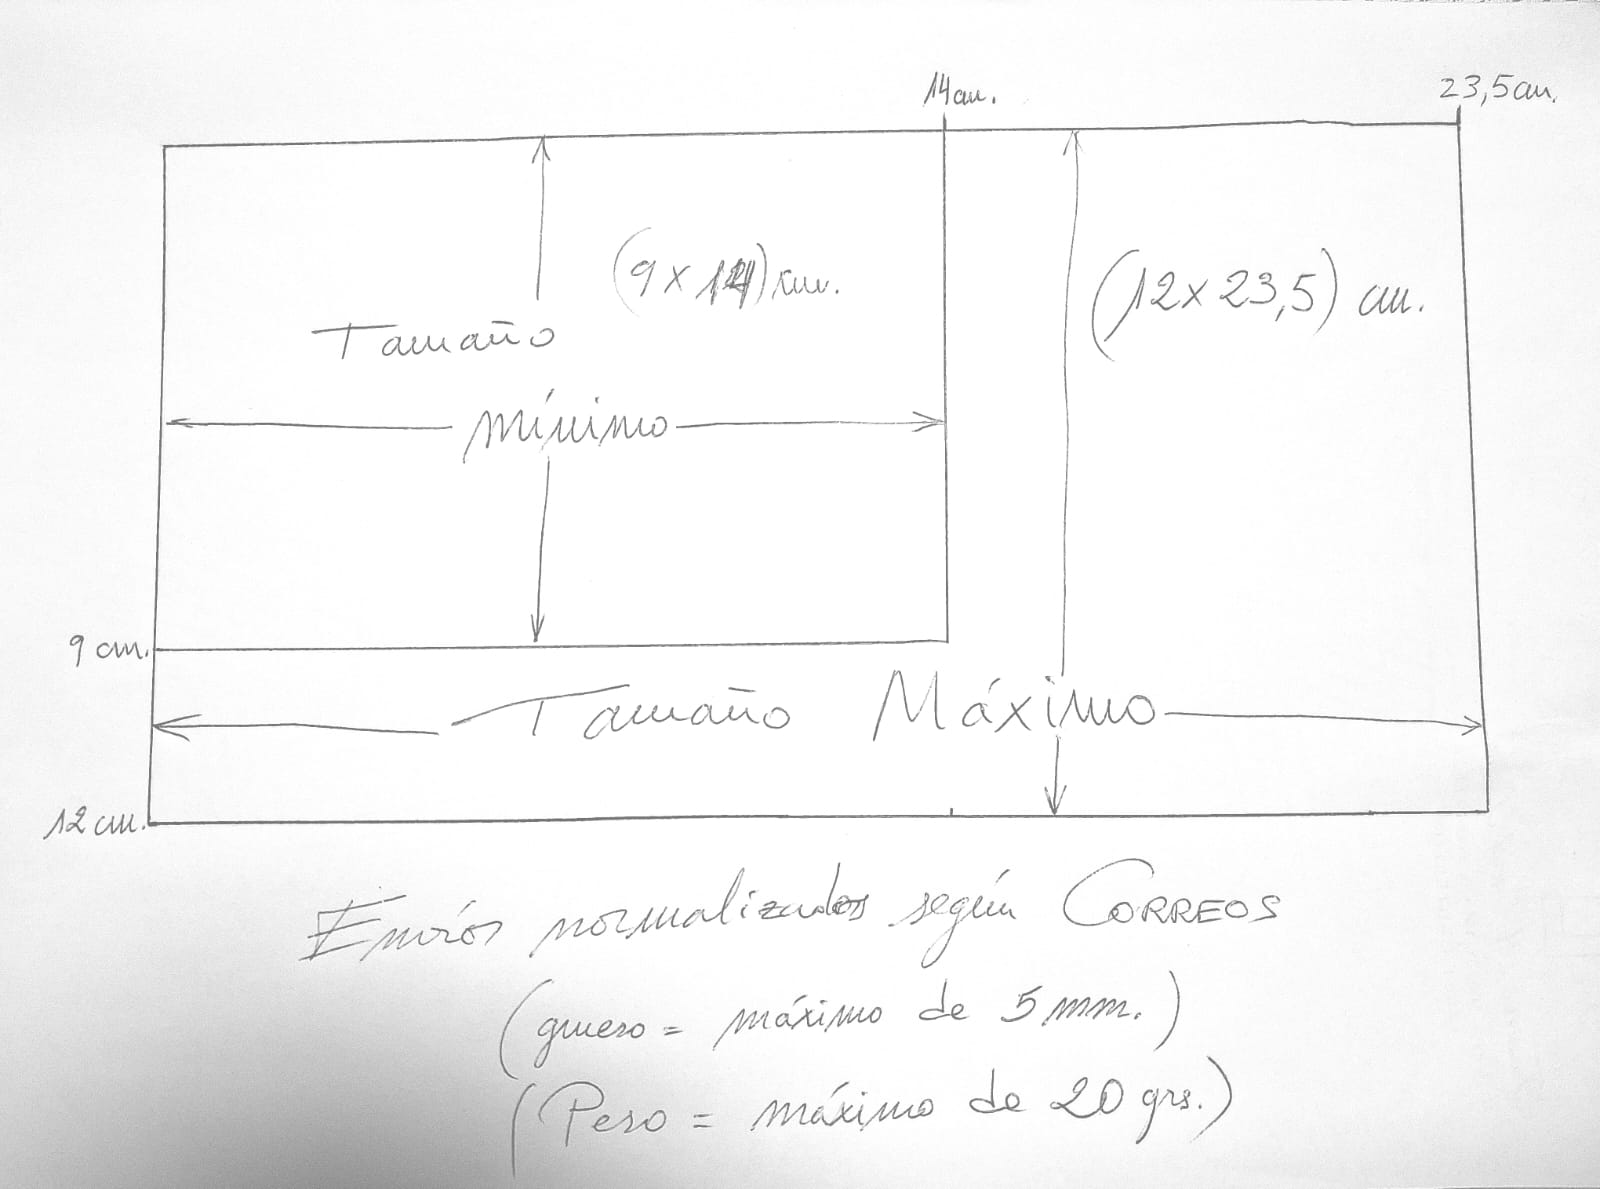 14 cm.
23,5 cm.
(9 x 14) cm.
(12 x 23,5) cm.
Tamaño
mínimo
9 cm.
Tamaño Máximo
12 cm.
Envíos normalizados según CORREOS
(grueso = máximo de 5 mm.)
(Peso = máximo de 20 grs.)